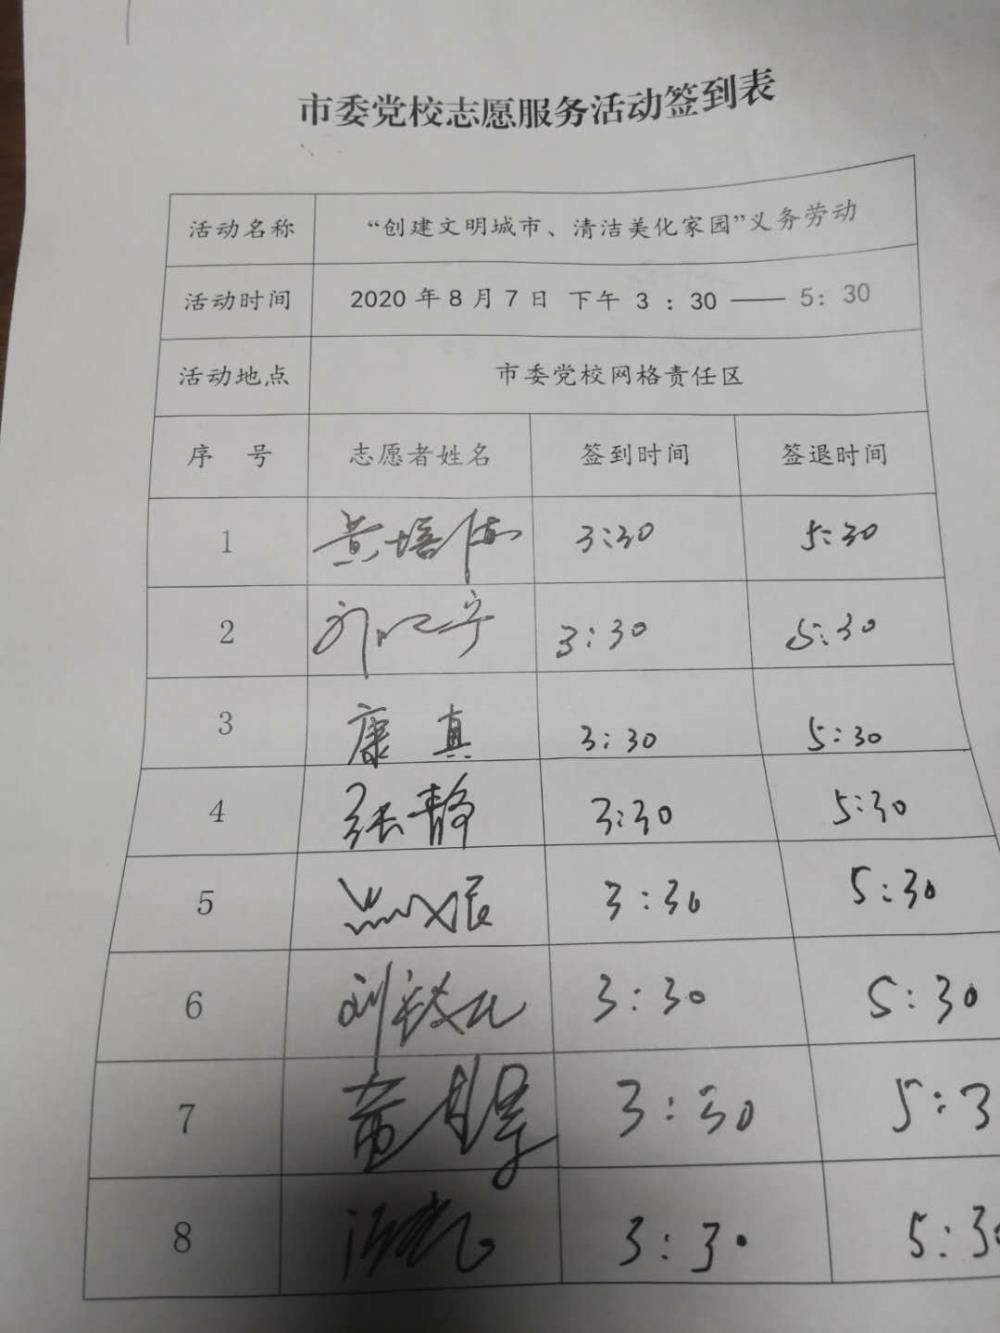 市委党校志愿服务活动签到表
活动名称 “创建文明城市、清洁美化家园”义务劳动
活动时间 2020年8月7日 下午 3:30——5:30
活动地点 市委党校网格责任区
序号 志愿者姓名 签到时间 签退时间
1 黄培 3:30 5:30
2 3:30 5:30
3 康真 3:30 5:30
4 张静 3:30 5:30
5 3:30 5:30
6 刘 3:30 5:30
7 3:30 5:3
8 3:30 5:30